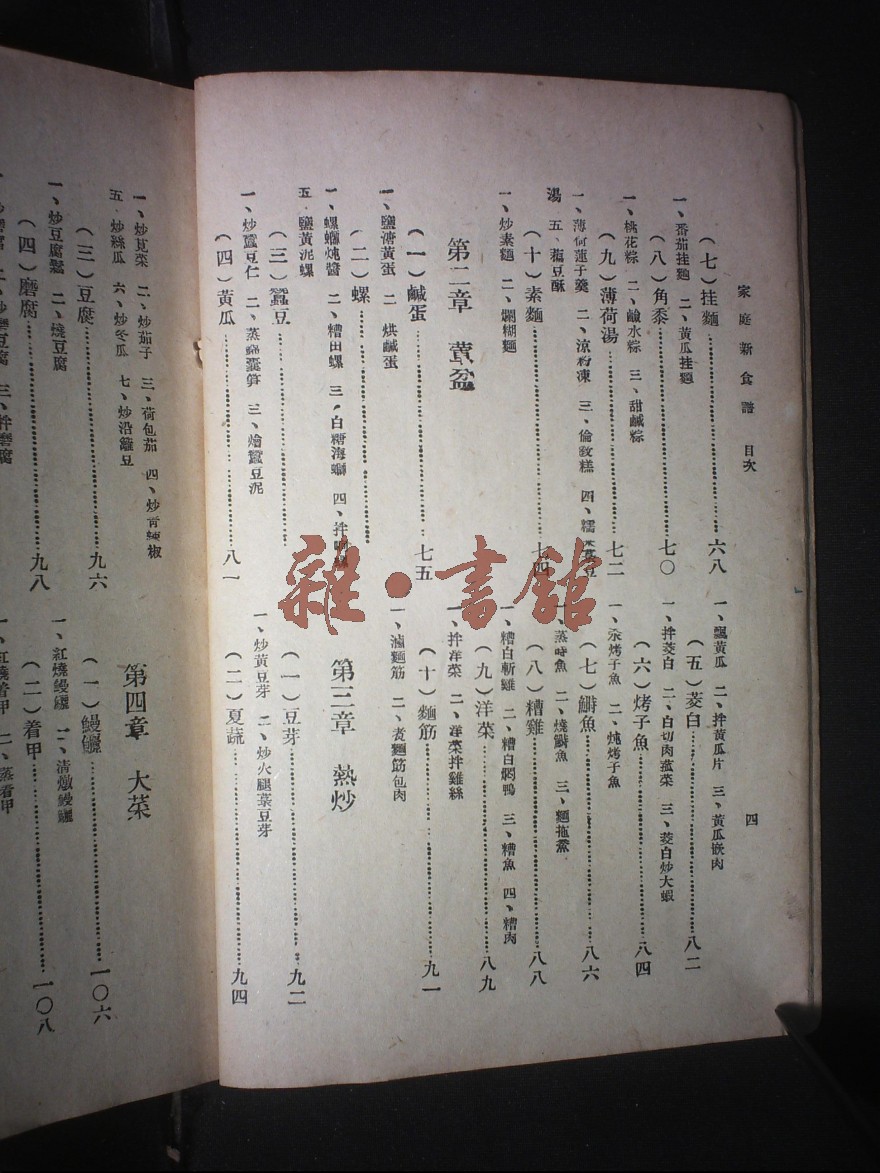 家庭新食譜 目次
四
(七)挂麵……六八
一、番茄挂麵 二、黃瓜挂麵
(八)角黍……七〇
一、桃花粽 二、鹼水粽 三、甜鹹粽
(九)薄荷湯……七二
一、薄荷蓮子羹 二、涼粉凍 三、倫敎糕 四、糯米菉豆
湯 五、藕豆酥
(十)素麵……七四
一、炒素麵 二、爛糊麵
第二章 葷盆
(一)鹹蛋……七五
一、鹽漬黃蛋 二 烘鹹蛋
(二)螺……
一、螺螄炖醬 二、糟田螺 三、白糖海螄 四、拌
五、鹽黃泥螺
(三)蠶豆……
一、炒蠶豆仁 二、蒸 三、燴蠶豆泥
(四)黃瓜……八一
一、瓢黃瓜 二、拌黃瓜片 三、黃瓜嵌肉
(五)茭白……八二
一、拌茭白 二、白切肉 三、茭白炒大蝦
(六)烤子魚……八四
一、汆烤子魚 二、炖烤子魚
(七)鰣魚……八六
一、蒸時魚 二、燒鰣魚 三、麵拖
(八)糟雞……八八
一、糟白斬雞 二、糟白燜鴨 三、糟魚 四、糟肉
(九)洋菜……八九
一、拌洋菜 二、洋菜拌雞絲
(十)麵筋……九一
一、滷麵筋 二、煮麵筋包肉
第三章 熱炒
(一)豆芽……九二
一、炒黃豆芽 二、炒火腿菉豆芽
(二)夏蔬……九四
一、炒莧菜 二、炒茄子 三、荷包茄 四、炒青辣椒
五、炒絲瓜 六、炒冬瓜 七、炒沿籬豆
(三)豆腐……九六
一、炒豆腐鬆 二、燒豆腐
(四)磨腐……九八
一、炒磨腐 二、炒蝦磨腐 三、拌磨腐
第四章 大菜
(一)鰻鱺……一〇六
一、紅燒鰻鱺 二、清燉鰻鱺
(二)着甲……一〇八
一、紅燒着甲 二、蒸着甲
雜·書館